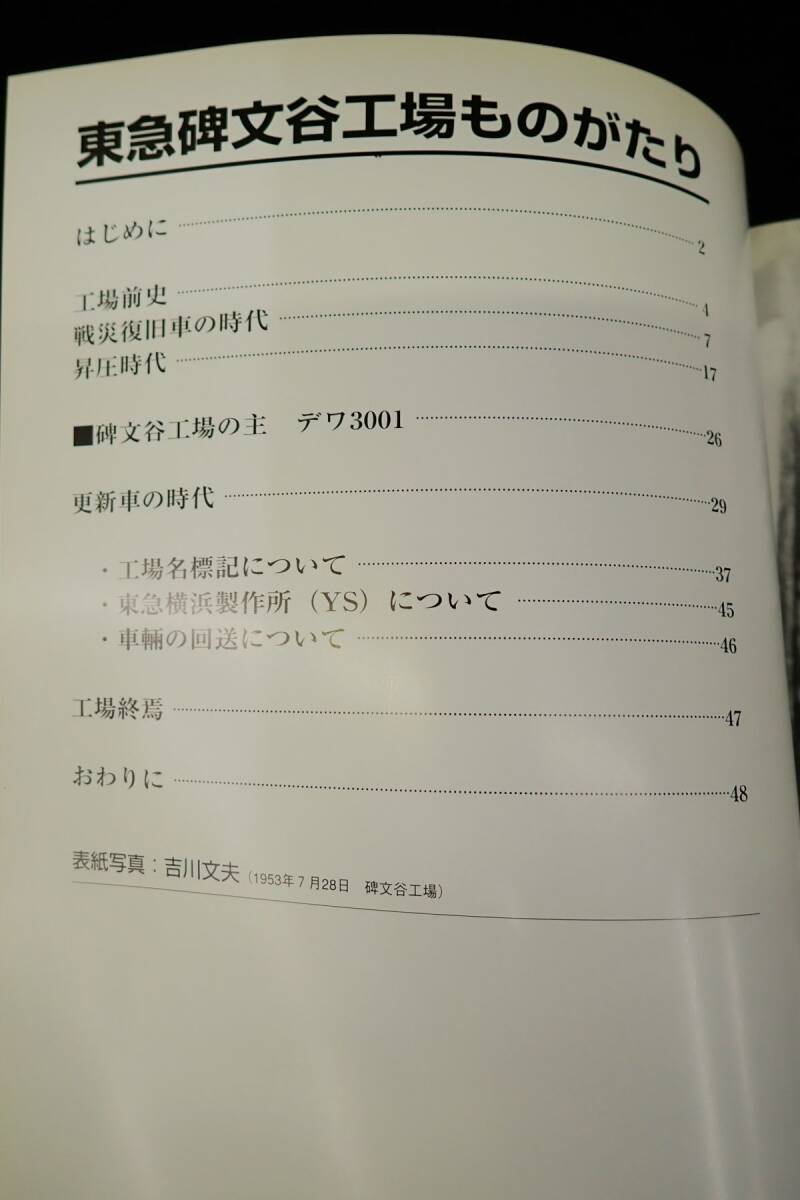 東急碑文谷工場ものがたり
はじめに 2
工場前史 4
戦災復旧車の時代 7
昇圧時代 17
■碑文谷工場の主　デワ3001 26
更新車の時代 29
・工場名標記について 37
・東急横浜製作所（YS）について 45
・車輛の回送について 46
工場終焉 47
おわりに 48
表紙写真：吉川文夫（1953年7月28日　碑文谷工場）